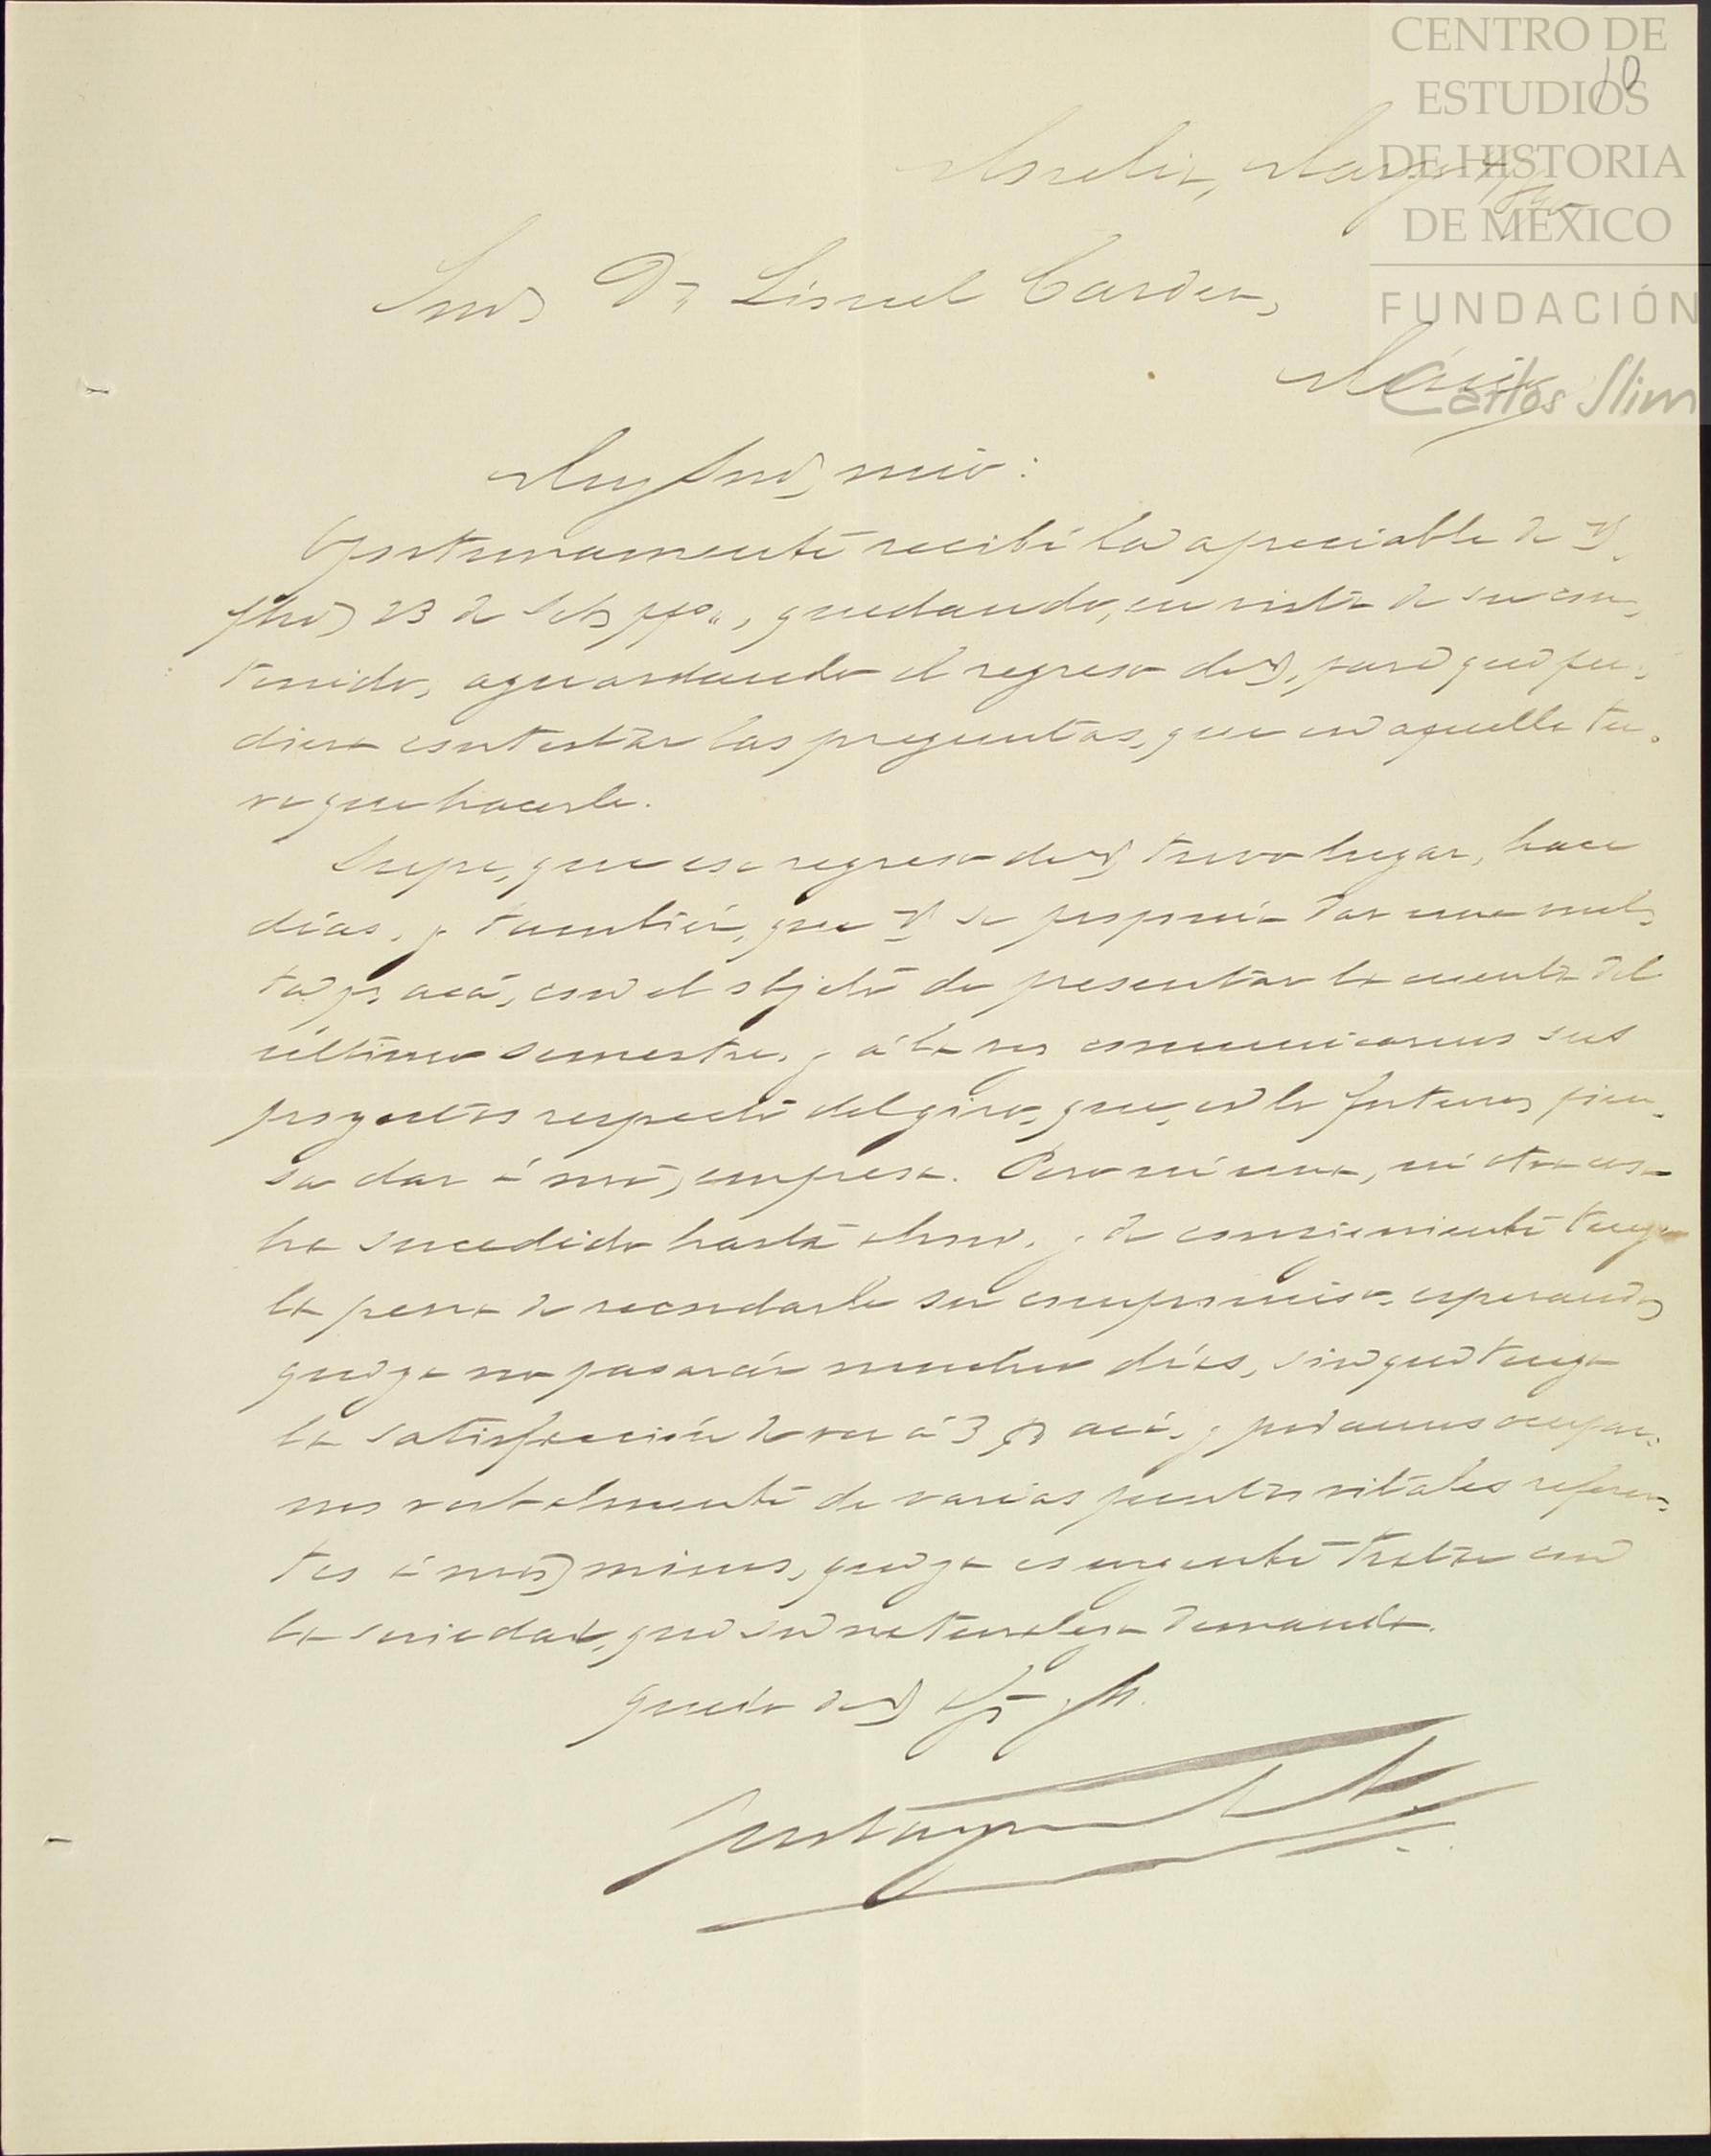 CENTRO DE
ESTUDIOS
DE HISTORIA
DE MÉXICO
FUNDACIÓN
Carlos Slim
10
Morelia, Mayo
Sr. Dn. Lionel Carden,
México
Muy Señor mío:
Oportunamente recibí la apreciable de V.
23 de , quedando, en vista de su con-
tenido, aguardando el regreso de V, para que pu-
diera contestar las preguntas, que en aquella tu-
ve que hacerle.
Supe, que ese regreso de V, tuvo lugar, hace
días, y también, que V. se proponía dar una vuel-
ta pr. acá, con el objeto de presentar la cuenta del
último semestre, y á la vez comunicarnos sus
proyectos respecto del giro, que, en lo futuro, pien-
sa dar á empresa. Pero ni una, ni otra cosa
ha sucedido hasta ahora, y de consiguiente tengo
la pena de recordarle su compromiso, esperando,
que ya no pasarán muchos días, sin que tenga
la satisfacción de ver á V. pr. acá, y podamos ocupar-
nos verbalmente de varios puntos vitales referen-
tes á minas, que ya es urgente tratar con
la seriedad, que su naturaleza demanda.
Quedo de V.